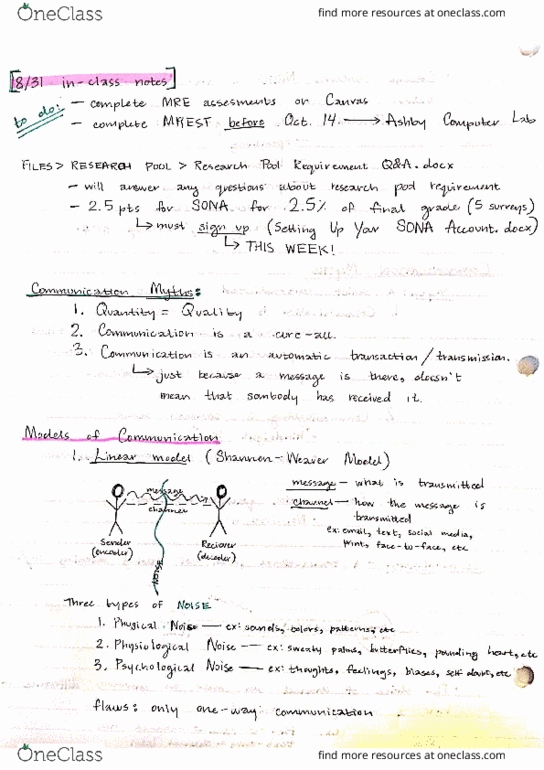 OneClass
find more resources at oneclass.com
[8/31 in-class notes]
to do:
— complete MRE assesments on Canvas
— complete MREST before Oct. 14. → Ashby Computer Lab
FILES > RESEARCH POOL > Research Pool Requirement Q&A.docx
- will answer any questions about research pool requirement
- 2.5 pts for SONA for 2.5% of final grade (5 surveys)
↳ must sign up (Setting Up Your SONA Account.docx)
↳ THIS WEEK!
Communication Myths:
1. Quantity = Quality
2. Communication is a cure-all.
3. Communication is an automatic transaction/transmission.
↳ just because a message is there, doesn't
mean that sombody has received it.
Models of Communication
1. Linear model (Shannon-Weaver Model)
message
channel
Sender
(encoder)
Reciever
(decoder)
NOISE
message — what is transmitted
channel — how the message is
transmitted
ex: email, text, social media,
print, face-to-face, etc
Three types of NOISE
1. Physical Noise — ex: sounds, colors, patterns, etc
2. Physiological Noise — ex: sweaty palms, butterflies, pounding heart, etc
3. Psychological Noise — ex: thoughts, feelings, biases, self doubt, etc
flaws: only one-way communication
OneClass
find more resources at oneclass.com